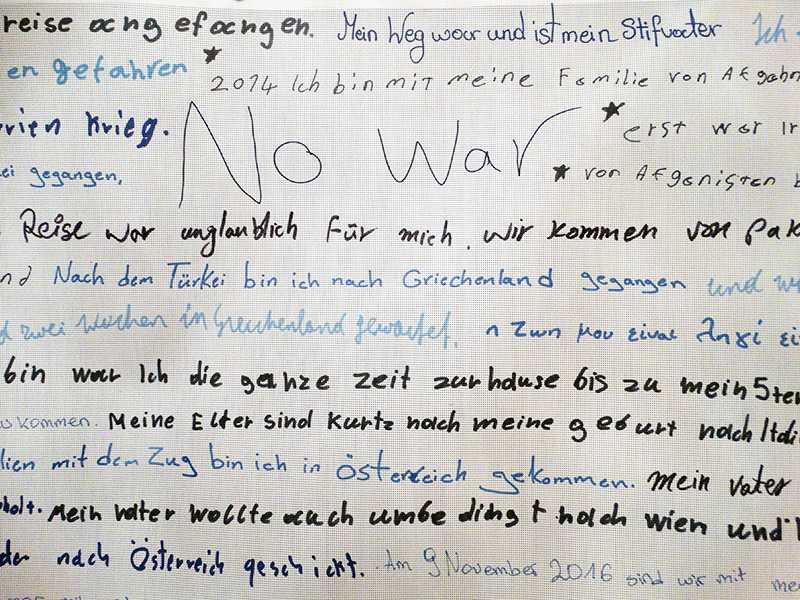 reise angefangen. Mein Weg war und ist mein Stifvater Ich
en gefahren ★ 2014 Ich bin mit meine Familie von Afgahn
rien Krieg. No War ★ erst war Ir
ei gegangen, ★ von Afganisten b
Reise war unglaublich für mich. Wir kommen von Pak
nd Nach dem Türkei bin ich nach Griechenland gegangen und w
d zwei Wochen in Griechenland gewartet. η ζωη μου ειναι
bin war Ich die ganze zeit zurhause bis zu mein 5ten
kommen. Meine Elter sind Kurtz nach meine geburt nach Itali
lien mit dem Zug bin ich in Österreich gekommen. Mein Vater
holt. Mein vater wollte auch umbedingt nach wien und
der nach Österreich geschickt. Am 9 November 2016 sind wir mit me